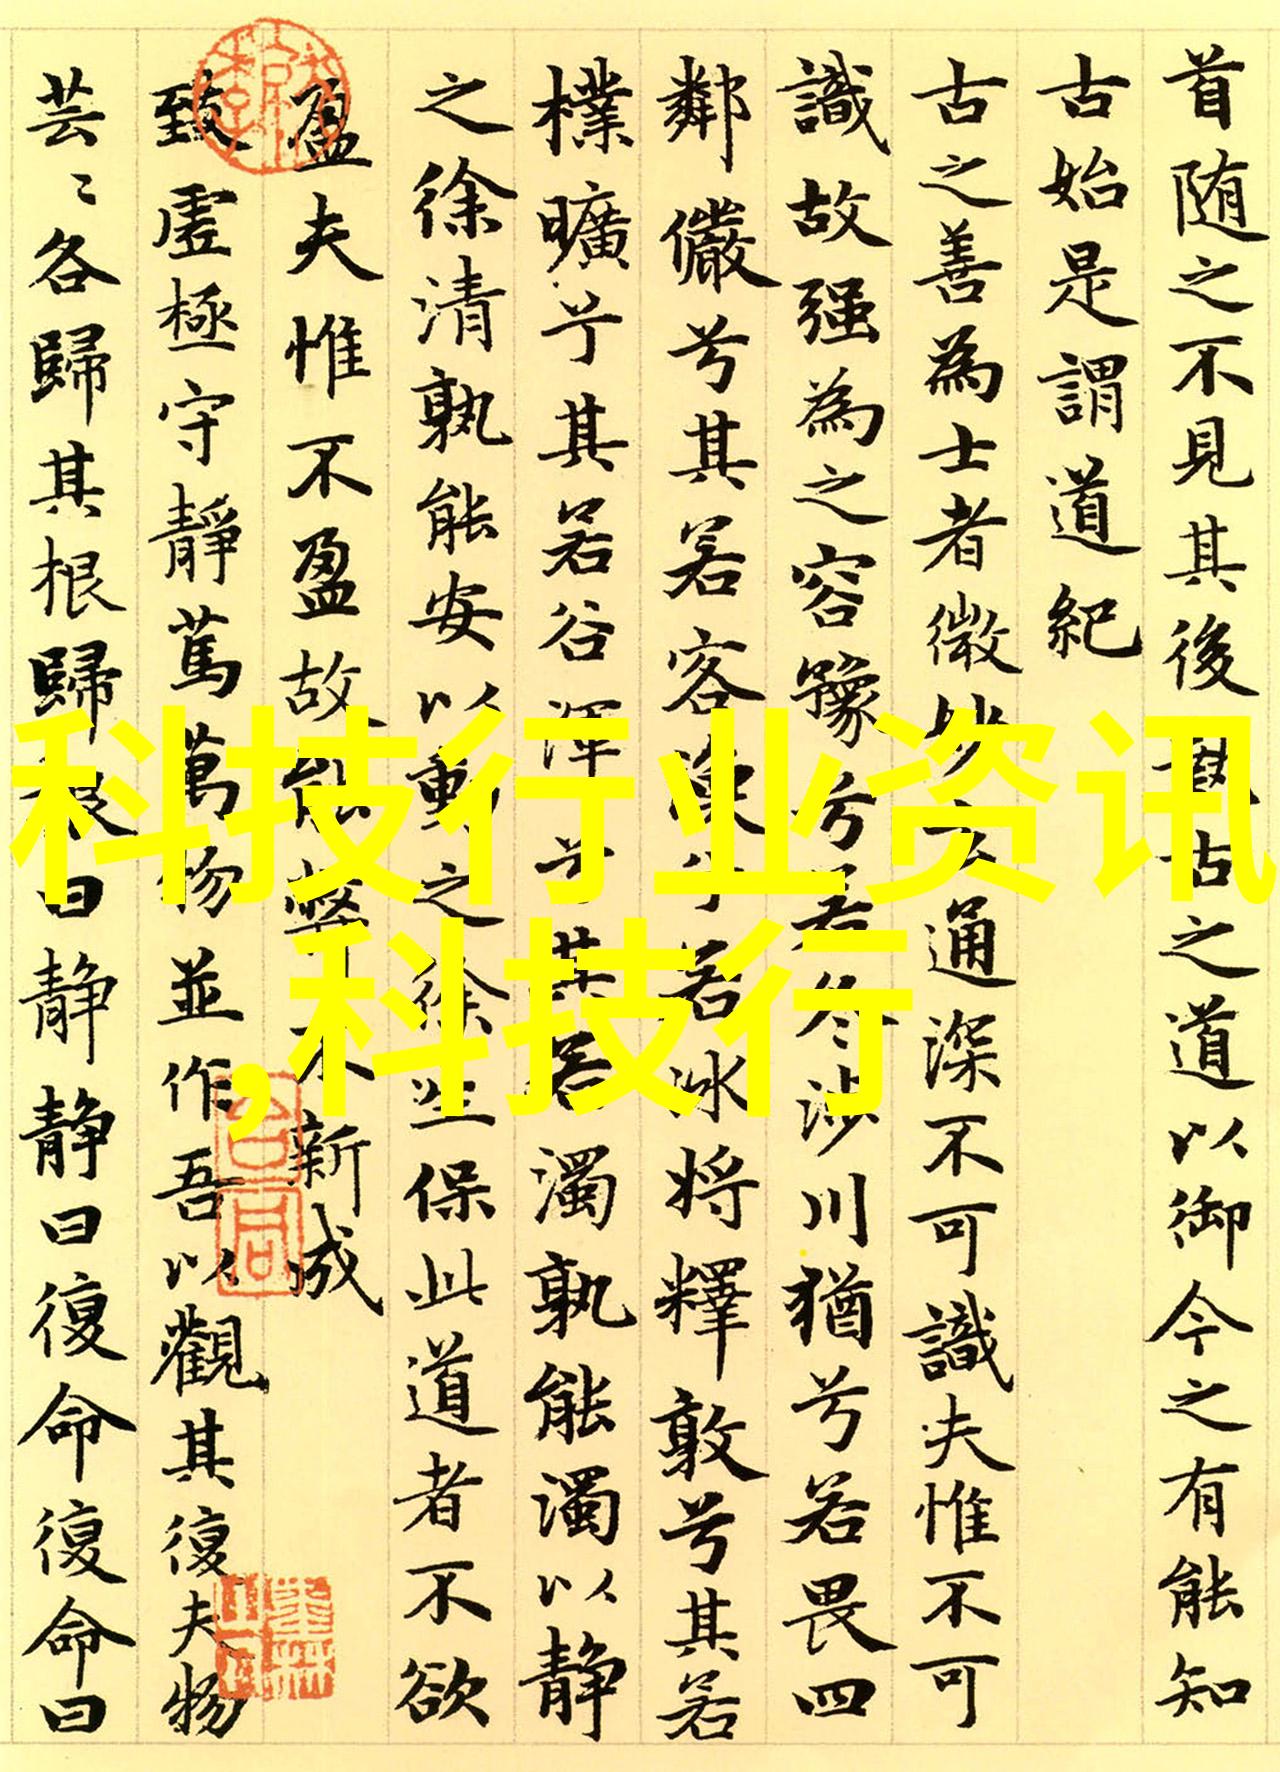 首随之不見其後執古之道以御今之有能知
古始是謂道紀
古之善為士者微妙玄通深不可識夫惟不可
識故强為之容豫兮若冬涉川猶兮若畏四
鄰儼兮其若客渙兮若冰將釋敦兮其若
樸曠兮其若谷渾兮其若濁孰能濁以静
之徐清孰能安以動之徐生保此道者不欲
盈夫惟不盈故能弊不新成
致虛極守靜篤萬物並作吾以觀其復夫物
芸〻各歸其根歸根曰静静曰復命復命曰
科技行业资讯
,科技行